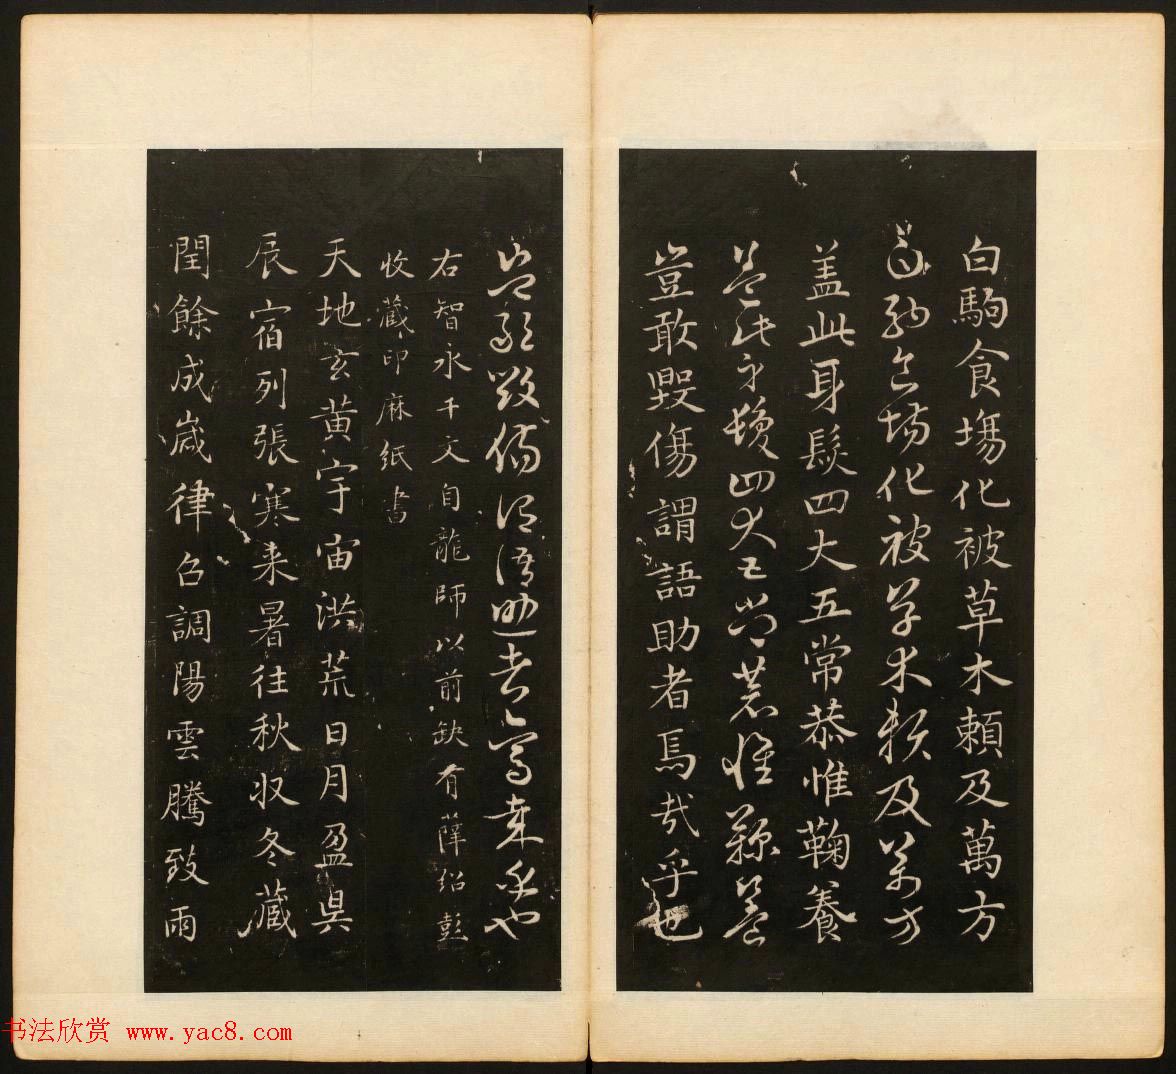 白駒食塲化被草木賴及萬方
白駒食場化被草木賴及萬方
盖此身髮四大五常恭惟鞠養
盖此身髮四大五常恭惟鞠養
豈敢毀傷謂語助者焉哉乎也
豈敢毀傷謂語助者焉哉乎也
右智永千文自龍師以前缺有薛紹彭
收藏印麻紙書
天地玄黃宇宙洪荒日月盈昃
辰宿列張寒来暑往秋收冬藏
閏餘成歲律召調陽雲騰致雨
书法欣赏 www.yac8.com